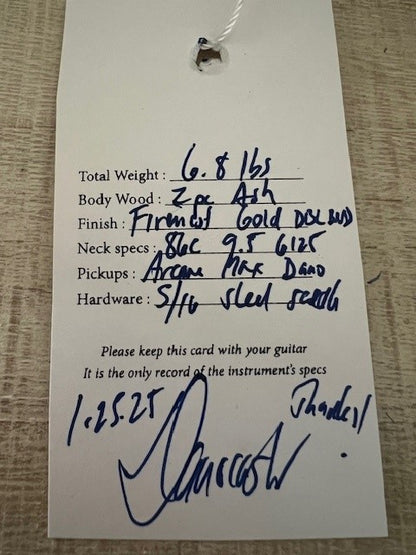 Total Weight : 6.8 lbs
Body Wood : 2 pc Ash
Finish : Firemist Gold DBL BND
Neck specs : 86C 9.5 6125
Pickups : Arcane Max Dano
Hardware : 5/16 sled
Please keep this card with your guitar
It is the only record of the instrument's specs
1.25.25
Thanks!